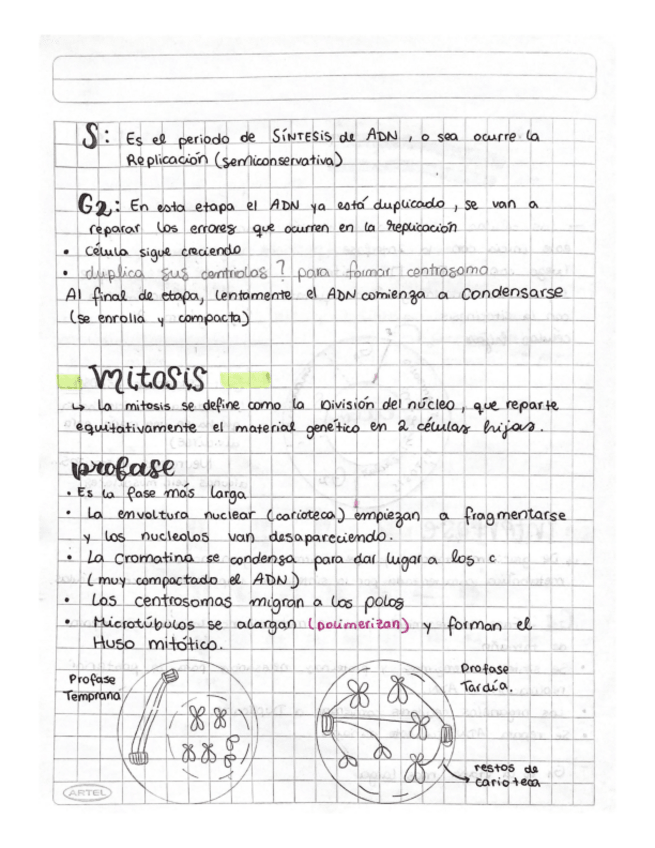 S: Es el periodo de SÍNTESIS de ADN, o sea ocurre la
Replicación (semiconservativa)
G2: En esta etapa el ADN ya está duplicado, se van a
reparar los errores que ocurren en la replicación
• Célula sigue creciendo
• duplica sus centriolos? para formar centrosomo
Al final de etapa, lentamente el ADN comienza a condensarse
(se enrolla y compacta)
Mitosis
↳ La mitosis se define como la División del núcleo, que reparte
equitativamente el material genético en 2 células hijas.
profase
• Es la fase más larga
• La envoltura nuclear (carioteca) empiezan a fragmentarse
y los nucleolos van desapareciendo.
• La cromatina se condensa para dar lugar a los c
(muy compactado el ADN)
• Los centrosomas migran a los polos
• Microtúbulos se alargan (polimerizan) y forman el
Huso mitótico.
Profase
Temprana
Profase
Tardía.
restos de
carioteca
ARTEL